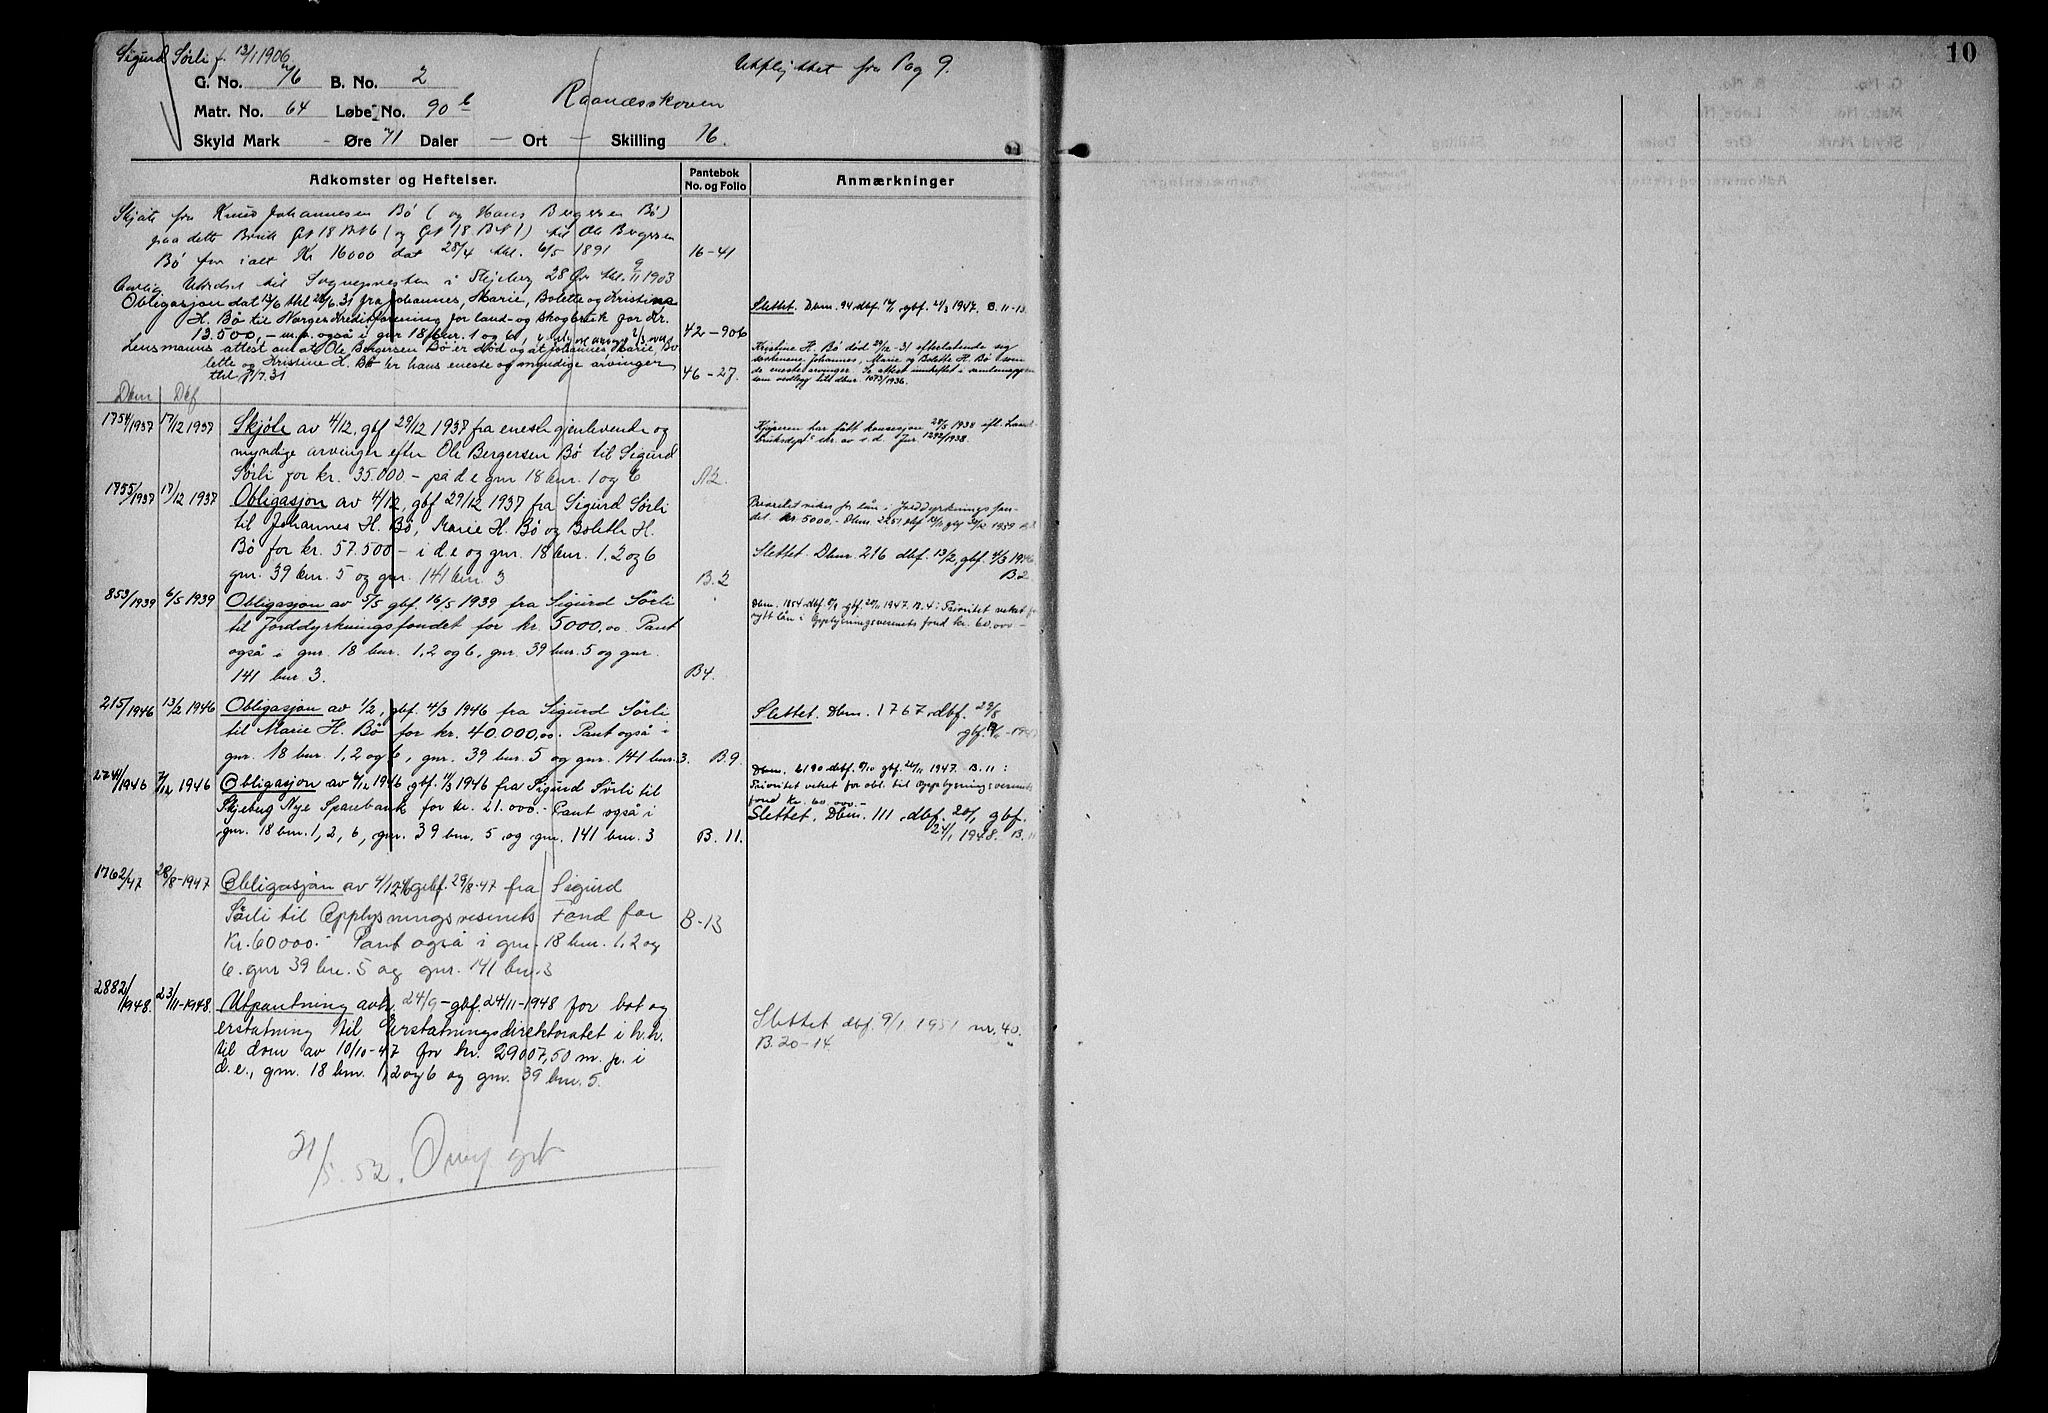 Sigurd Sørli f. 13/1 1906
Utflyttet fra Pag 9.
10
G. No. 16 B. No. 2
Matr. No. 64 Løbe No. 90 b
Raanæsskoven
Skyld Mark - Øre 71 Daler - Ort - Skilling 16.
Adkomster og Heftelser.
Pantebok No. og Folio
Anmærkninger
Skjøte fra Knud Johannesen Bø (og Hans Bergersen Bø)
paa dette Bruk G.N 18 B.N 6 (og G.N 18 B.N 1) til Ole Bergersen
Bø for ialt Kr 16000 dat 28/4 thl. 6/5 1891
16-41
til Sognepresten i Skjeberg 28 Øre thl. 9/11 1903
Obligasjon dat 13/6 thl 20/6.31 fra Johannes, Marie, Bolette og Kristine
H. Bø til Norges Kreditforening for land- og skogbruk for kr.
13.500,- m.p. også i gnr 18 bnr. 1 og 6,
42-906
Slettet. Dbnr. 94 dbf. gbf. 1/3 1947. B. 11-13
Lensmanns attest om at Ole Bergersen Bø er død og at Johannes, Marie, Bo-
lette og Kristine H. Bø er hans eneste og myndige arvinger
thl 7/7.31
46-27.
Kristine H. Bø død 29/12-31 efterlatende seg
søskenene Johannes, Marie og Bolette H. Bø som
de eneste arvinger. Se attest innheftet i samlemappen
som vedlegg till dbnr. 1073/1936.
Dbnr Dbf
1754/1937 17/12 1937 Skjøte av 4/12, gbf 29/12 1937 fra eneste gjenlevende og
myndige arvinger efter Ole Bergersen Bø til Sigurd
Sørli for kr. 35.000.- på d e gnr 18 bnr. 1 og 6
A2.
Kjøperen har fått konsesjon 29/5 1938 efl. Land-
bruksdept's skr. av s.d. Jnr 1292/1938.
1755/1937 17/12 1937 Obligasjon av 4/12, gbf 29/12 1937 fra Sigurd Sørli
til Johannes H. Bø, Marie H. Bø og Bolette H.
Bø for kr. 57.500 - i d.e og gnr. 18 bnr. 1, 2 og 6
gnr. 39 bnr. 5 og gnr. 141 bnr. 3
B. 2
Prioritet viker for lån i Jorddyrkningsfon-
det. kr 5000.- Dbnr. 2251
Slettet. Dbnr. 216 dbf. 13/2, gbf. 4/3 1946
B.2
853/1939 6/5 1939 Obligasjon av 5/5 gbf. 16/5 1939 fra Sigurd Sørli
til Jorddyrkningsfondet for kr. 5000,00. Pant
også i gnr. 18 bnr. 1, 2 og 6, gnr. 39 bnr. 5 og gnr.
141 bnr 3.
B4.
Dbnr. 1854 dbf. gbf. 1947. B. 4: Prioritet veket for
nytt lån i Opplysningsvesenets fond kr. 60.000 -
215/1946 13/2 1946 Obligasjon av 1/2, gbf. 4/3 1946 fra Sigurd Sørli
til Marie H. Bø for kr. 40.000,00. Pant også i
gnr. 18 bnr. 1, 2 og 6, gnr. 39 bnr. 5 og gnr. 141 bnr. 3. B.9.
Slettet. Dbnr. 1767, dbf. 29/8
2241/1946 7/12 1946 Obligasjon av 4/12 1946 gbf. 11/3 1946 fra Sigurd Sørli til
Skjeberg Nye Sparebank for kr. 21.000.- Pant også i
gnr. 18 bnr. 1, 2, 6, gnr. 39 bnr. 5 og gnr. 141 bnr. 3
B. 11.
Dbnr. 2190 dbf. gbf. 1947. B. 11:
Prioritet veket for obl. til Opplysningsvesenets
fond kr. 60.000.-
Slettet, Dbnr. 111, dbf. 20/1 gbf.
24/1 1948. B. 11
1762/47 28/8-1947 Obligasjon av 4/12 46 gbf. 29/8-47 fra Sigurd
Sørli til Opplysningsvesenets Fond for
Kr. 60000.- Pant også i gnr. 18 bnr. 1, 2 og
6. gnr 39 bnr. 5 og gnr. 141 bnr. 3
B-13
2882/1948. 23/11-1948. Utpantning avh. 24/9- gbf. 24/11-1948 for bot og
erstatning til Erstatningsdirektoratet i h.h.
til dom av 10/10-47 for kr. 29007,50 m. p. i
d.e., gnr. 18 bnr. 1, 2 og 6 og gnr. 39 bnr. 5.
Slettet dbf. 9/1 1951 nr. 40.
B. 20-14.
21/5. 52.